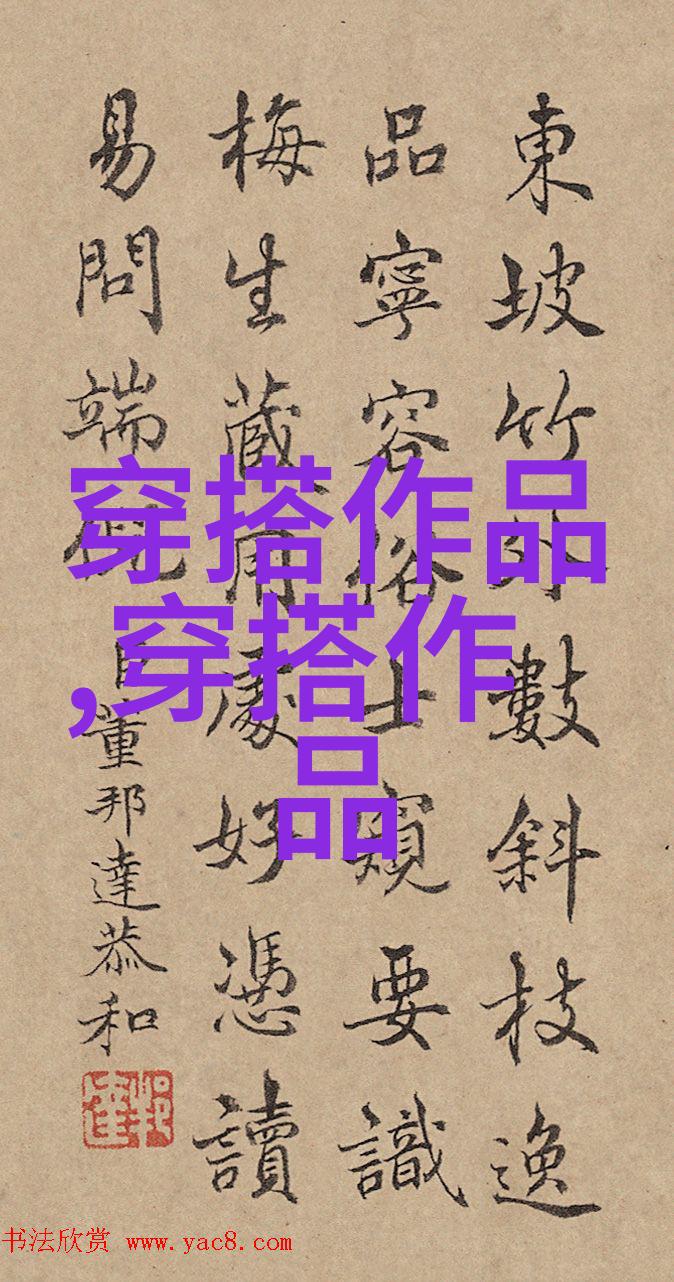 東坡竹外數斜枝逸
品寧容俗士窺要識
梅生藏用處好憑讀
易問端硯
臣董邦達恭和
邦達
穿搭作品
,穿搭作
品
书法欣赏 www.yac8.com